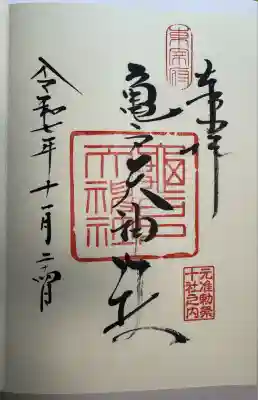 奉拝
東宰府
亀戸天神社
龜戸天神社
元准勅祭
十社之内
令和七年十一月二十四日